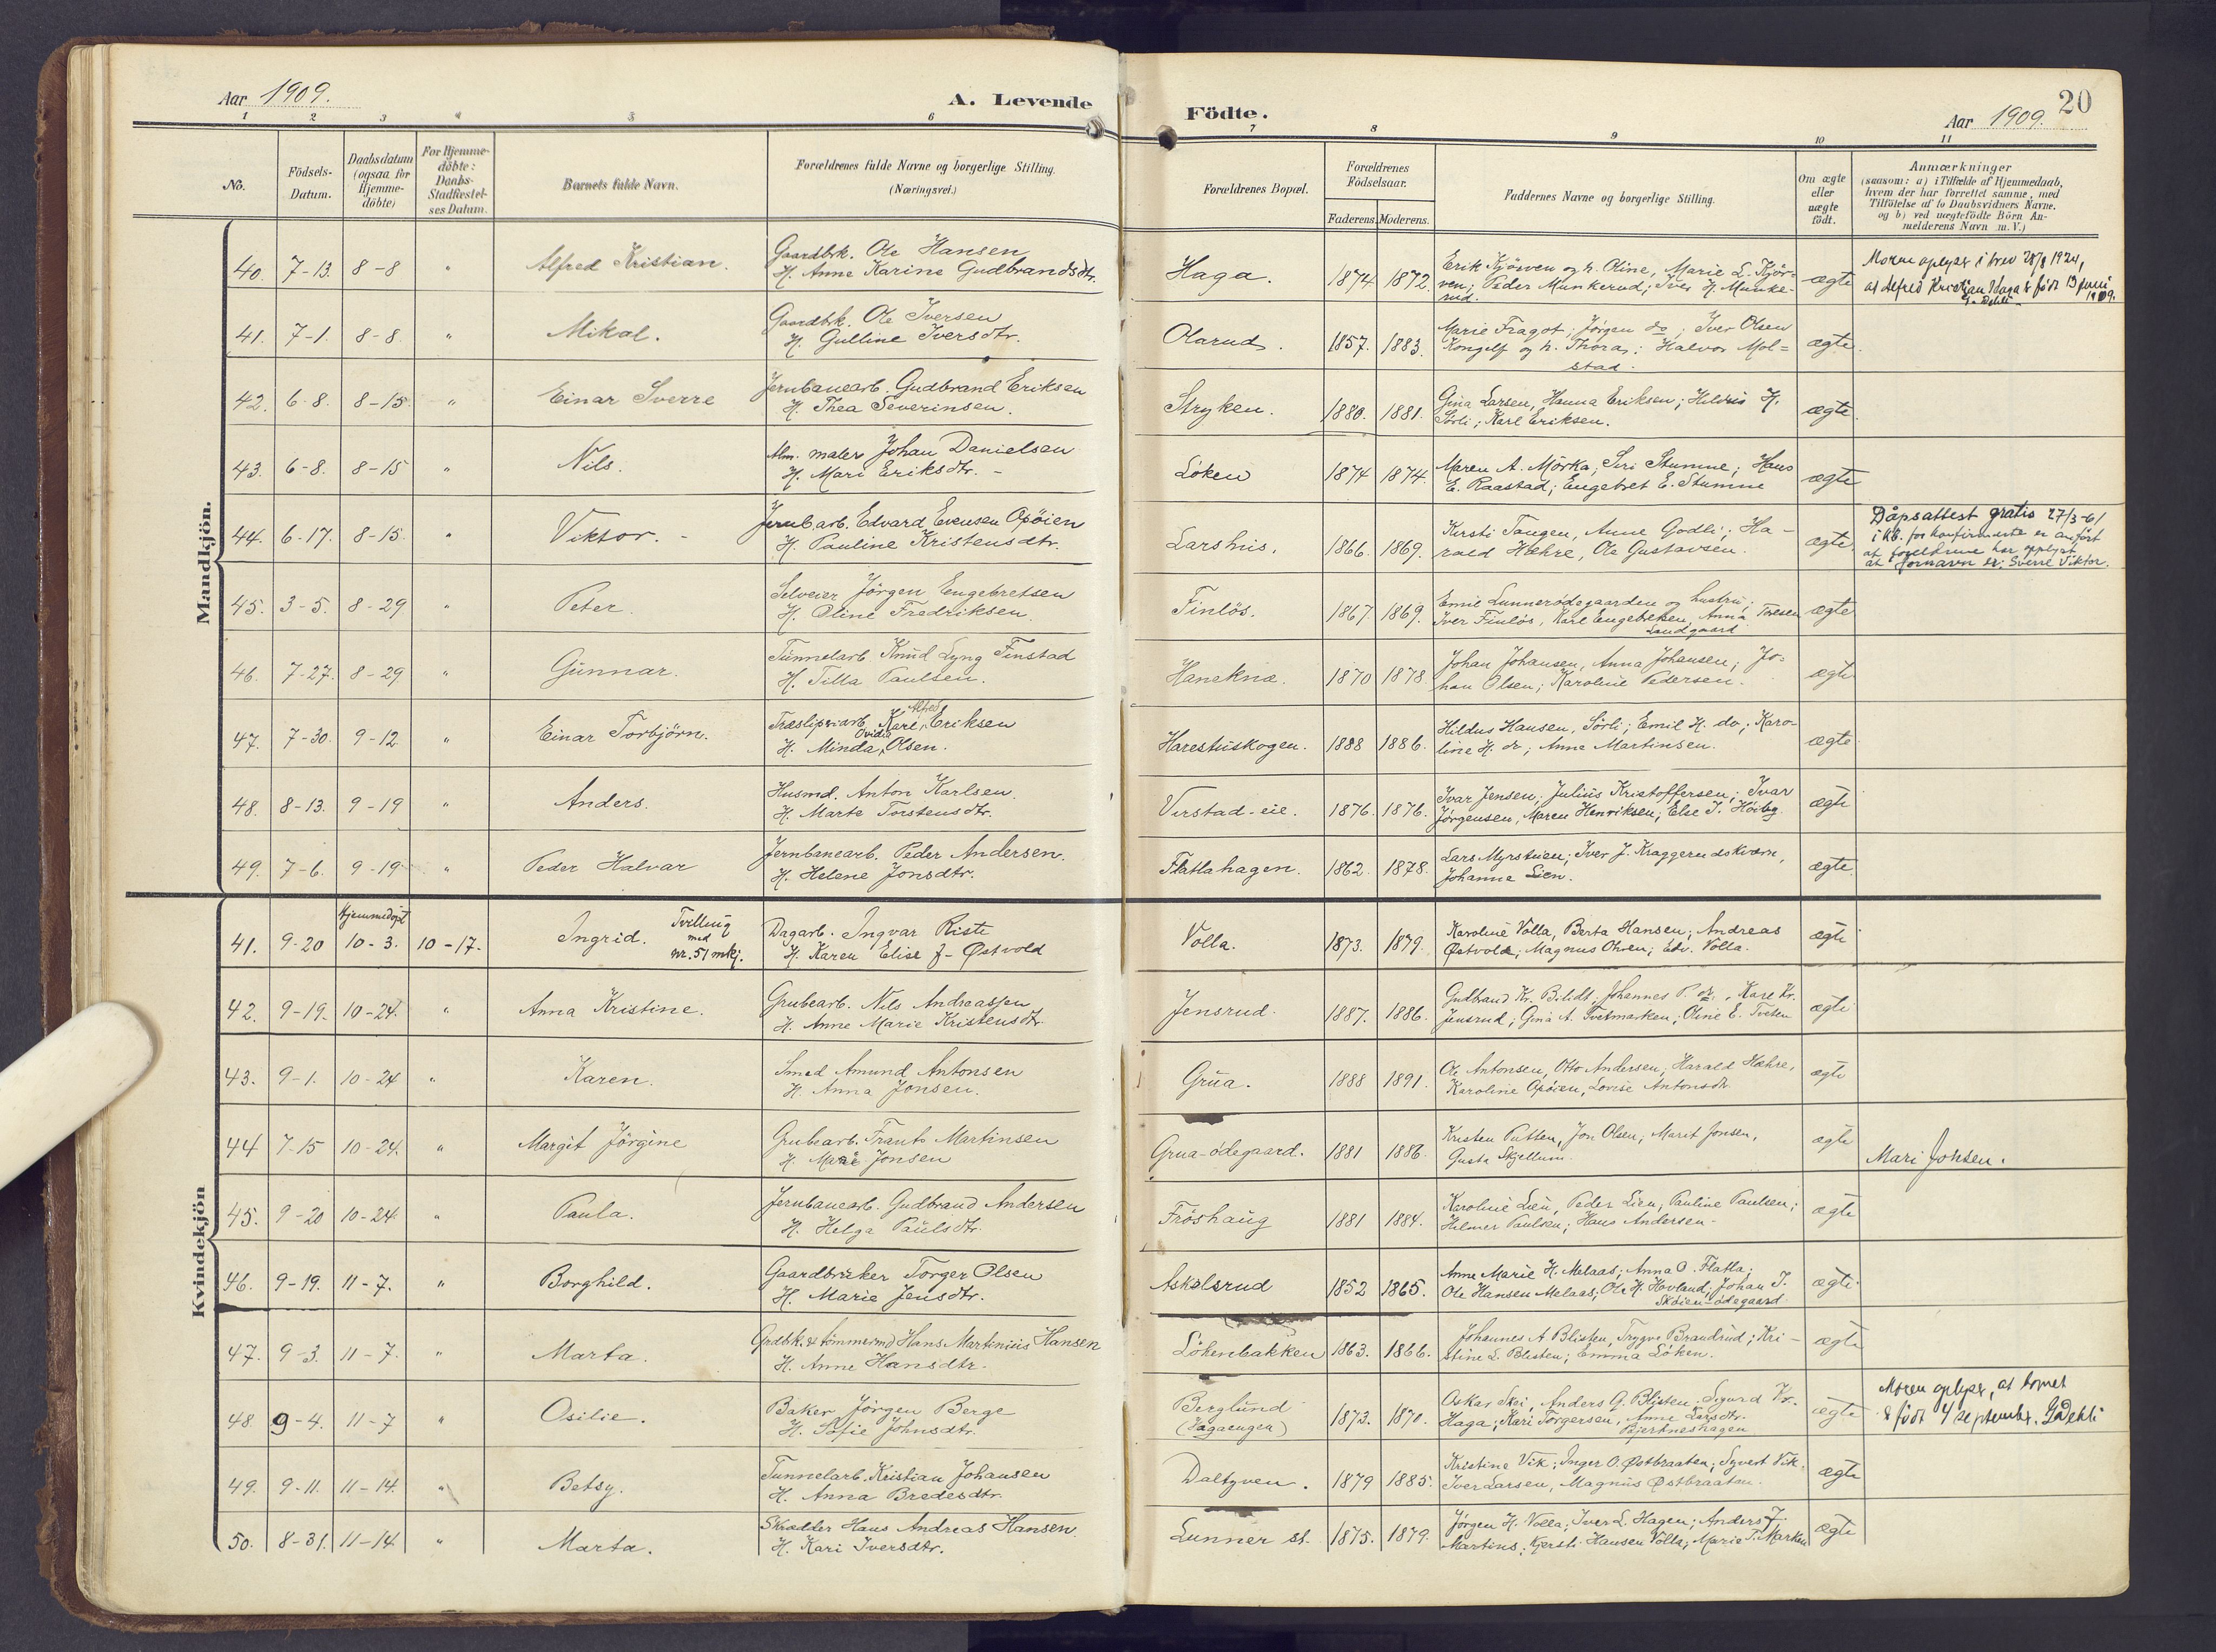 Aar 1909. A. Levende Födte. Aar 1909. 20
1 2 3 4 5 6 7 8 9 10 11
No.
Födsels-
Datum.
Daabsdatum
(ogsaa for
Hjemme-
döbte)
For Hjemme-
döbte:
Daabs-
Stadfæstel-
ses Datum.
Barnets fulde Navn.
Forældrenes fulde Navne og borgerlige Stilling.
(Næringsvei.)
Forældrenes Bopæl.
Forældrenes
Födselsaar.
Faderens. Moderens.
Faddernes Navne og borgerlige Stilling.
Om ægte
eller
uægte
födt.
Anmærkninger
(saasom: a) i Tilfælde af Hjemmedaab,
hvem der har forrettet samme, med
Tilföielse af to Daabsvidners Navne.
og b) ved uægtefödte Börn An-
melderens Navn m. V.)
Mandkjön.
40. 7-13. 8-8 " Alfred Kristian.
Gaardbrk. Ole Hansen
H. Anne Karine Gudbrandsdtr.
Haga. 1874 1872.
Erik Kjörven og h. Oline, Marie L. Kjör-
ven; Peder Munkerud; Iver H. Munke-
rud.
ægte
Moren oplyser i brev 28/8 1924,
at Alfred Kristian Haga er född 13 juni
1909.
G. Dehli
41. 7-1. 8-8. " Mikal.
Gaardbrk. Ole Iversen
H. Gulline Iversdtr.
Olarud. 1857. 1883.
Marie Fragot; Jörgen do; Iver Olsen
Kongelf og h. Thora; Halvor Mol=
stad.
ægte.
42. 6-8. 8-15. " Einar Sverre
Jernbanearb. Gudbrand Eriksen
H. Thea Severinsen.
Stryken. 1880. 1881.
Gina Larsen, Hanna Eriksen; Hildus H.
Sörli; Karl Eriksen.
ægte.
43. 6-8. 8-15 " Nils.
Alm. maler Johan Danielsen
H. Mari Eriksdtr. -
Löken 1874 1874.
Maren A. Mörka; Siri Stumne; Hans
E. Raastad; Engebret E. Stumne
ægte
44. 6-17. 8-15. " Viktor. -
Jernb.arb. Edvard Evensen Opöien
H. Pauline Kristensdtr.
Larshus. 1866. 1869.
Kersti Tangen, Anne Godli; Ha-
rald Hæhre, Ole Gustavsen.
ægte.
Dåpsattest gratis 27/3-61
i kb. for konfirmerte er anfört
at foreldrene har opplyst
at fornavn er: Sverre Viktor.
45. 3-5. 8-29 " Peter.
Selveier Jörgen Engebretsen
H. Oline Fredriksen.
Finlös. 1867. 1869.
Emil Lunnerödegaarden og hustru;
Iver Finlös, Karl Engebretsen, Anna Toresen
Sandgaard
ægte
46. 7-27. 8-29 " Gunnar.
Tunnelarb Knud Lyng Finstad
H. Tilla Paulsen.
Hanekna. 1870 1878.
Johan Johansen, Anna Johansen; Jo=
han Olsen; Karoline Pedersen.
ægte
47. 7-30. 9-12. " Einar Torbjörn.
Alfred
Træsliperiarb. Karl, Eriksen
Ovidia
H. Minda, Olsen.
Harestuskogen. 1888 1886.
Hildus Hansen, Sörli; Emil H. do; Karo-
line H. do; Anne Martinsen.
ægte.
48. 8-13. 9-19 " Anders.
Husmd. Anton Karlsen.
H. Marte Torstensdtr.
Verstad-eie. 1876. 1876.
Ivar Jensen; Julius Kristoffersen; Ivar
Jörgensen; Maren Henriksen; Else T. Höibg.
ægte
49. 7-6. 9-19 " Peder Halvar
Jernbanearb. Peder Andersen.
H. Helene Jonsdtr.
Flatlahagen. 1862. 1878.
Lars Myrstuen; Iver J. Kraggerudskværn,
Johanne Lien.
ægte.
Kvindekjön
Hjemmedöpt
41. 9-20 10-3. 10-17. Ingrid.
Tvilling
med
nr. 51 mkj.
Dagarb. Ingvar Riste
H. Karen Elise f- Østvold
Volla. 1873. 1879.
Karoline Volla, Berta Hansen; Andreas
Østvold; Magnus Olsen; Edv. Volla.
ægte
42. 9-19. 10-24. " Anna Kristine.
Grubearb. Nils Andreassen
H. Anne Marie Kristensdtr.
Jensrud. 1887. 1886.
Gudbrand Kr. Bilidt, Johannes P. do., Karl Kr.
Jensrud; Gina A. Tveitmarken; Oline E. Tveten
ægte
43. 9-1. 10-24 " Karen.
Smed Amund Antonsen
H. Anna Jonsen.
Grua. 1888 1891.
Ole Antonsen, Otto Andersen, Harald Hæhre,
Karoline Opöien, Lovise Antonsdtr.
ægte
44 7-15 10-24. " Margit Jörgine
Grubearb. Frants Martinsen
H. Marie Jonsen
Grua-ödegaard. 1881 1886.
Kristen Putten, Jon Olsen; Marit Jonsen,
Gusta Skjellum.
ægte
Mari Johsen.
45. 9-20 10-24. " Paula.
Jernbanearb. Gudbrand Andersen
H. Helga Paulsdtr.
Fröshaug 1881 1884.
Karoline Lien, Peder Lien, Pauline Paulsen;
Helmer Paulsen; Hans Andersen.
ægte
46. 9-19. 11-7. " Borghild.
Gaardbruker Torger Olsen
H. Marie Jensdtr.
Askelsrud 1852 1865.
Anne Marie H. Melaas; Anna O. Flatla;
Ole Hansen Melaas; Ole H. Hovland; Johan T.
Sköien-ödegaard.
ægte.
47. 9-3. 11-7. " Marta.
Grdbk. & tömmermd Hans Martinius Hansen
H. Anne Hansdtr.
Lökenbakken 1863. 1866.
Johannes A Blisten, Trygve Brandrud; Kri-
stine L. Blisten; Emma Löken.
ægte
48. 9-4. 11-7 " Osilie.
Baker Jörgen Berge
H. Sofie Johnsdtr.
Berglund
(Hagaengen)
1873. 1870.
Oskar Skei, Anders G. Blisten, Sigurd Kr.
Haga; Kari Torgersen, Anne Larsdtr.
Bjertneshagen
ægte
Moren oplyser, at barnet
er född 4 september. G. Dehli
49. 9-11. 11-14. " Betsy.
Tunnelarb. Kristian Johansen
H. Anna Bredesdtr.
Daltyven. 1879 1885.
Kristine Vik; Inger O. Østbraaten; Syvert Vik.
Iver Larsen, Magnus Østbraaten.
ægte
50. 8-31. 11-14. " Marta.
Skrædder Hans Andreas Hansen.
H. Kari Iversdtr.
Lunner st. 1875. 1879.
Jörgen H. Volla; Iver L. Hagen; Anders J.
Martins; Kjersti Hansen Volla; Marie T. Marken
ægte